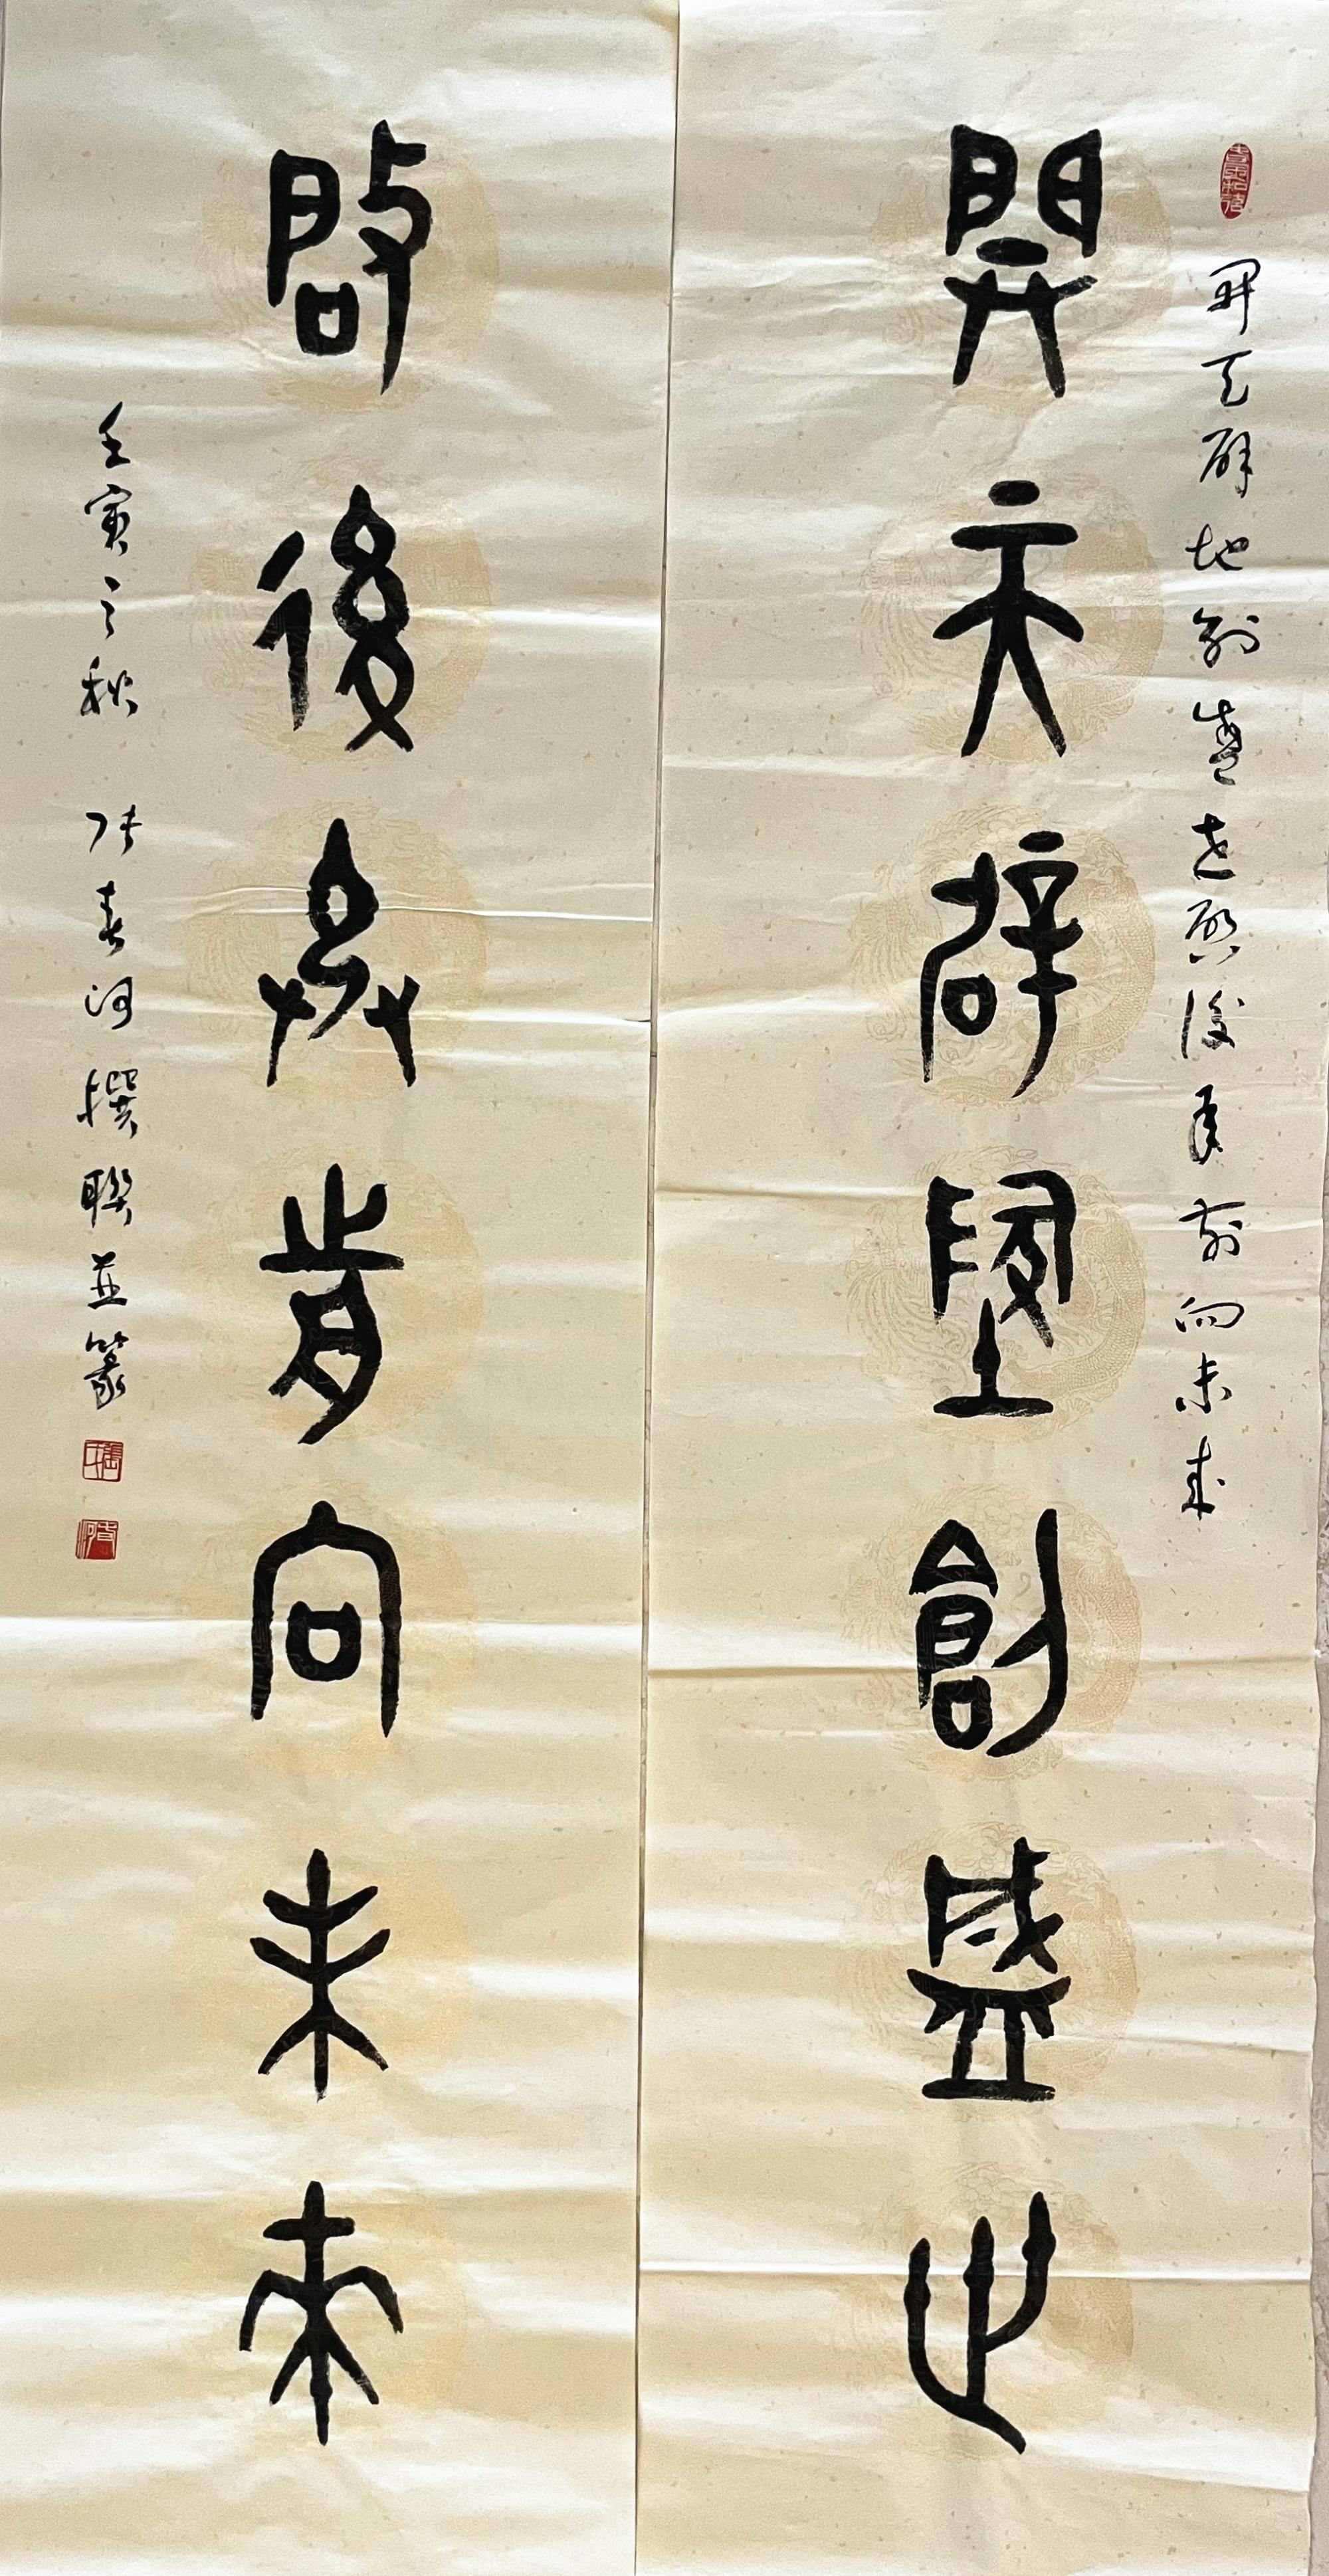 开天辟地创盛世启后承前向未来
開天辟地創盛世
啟後承前向未來
壬寅之秋 张春河撰聯並篆